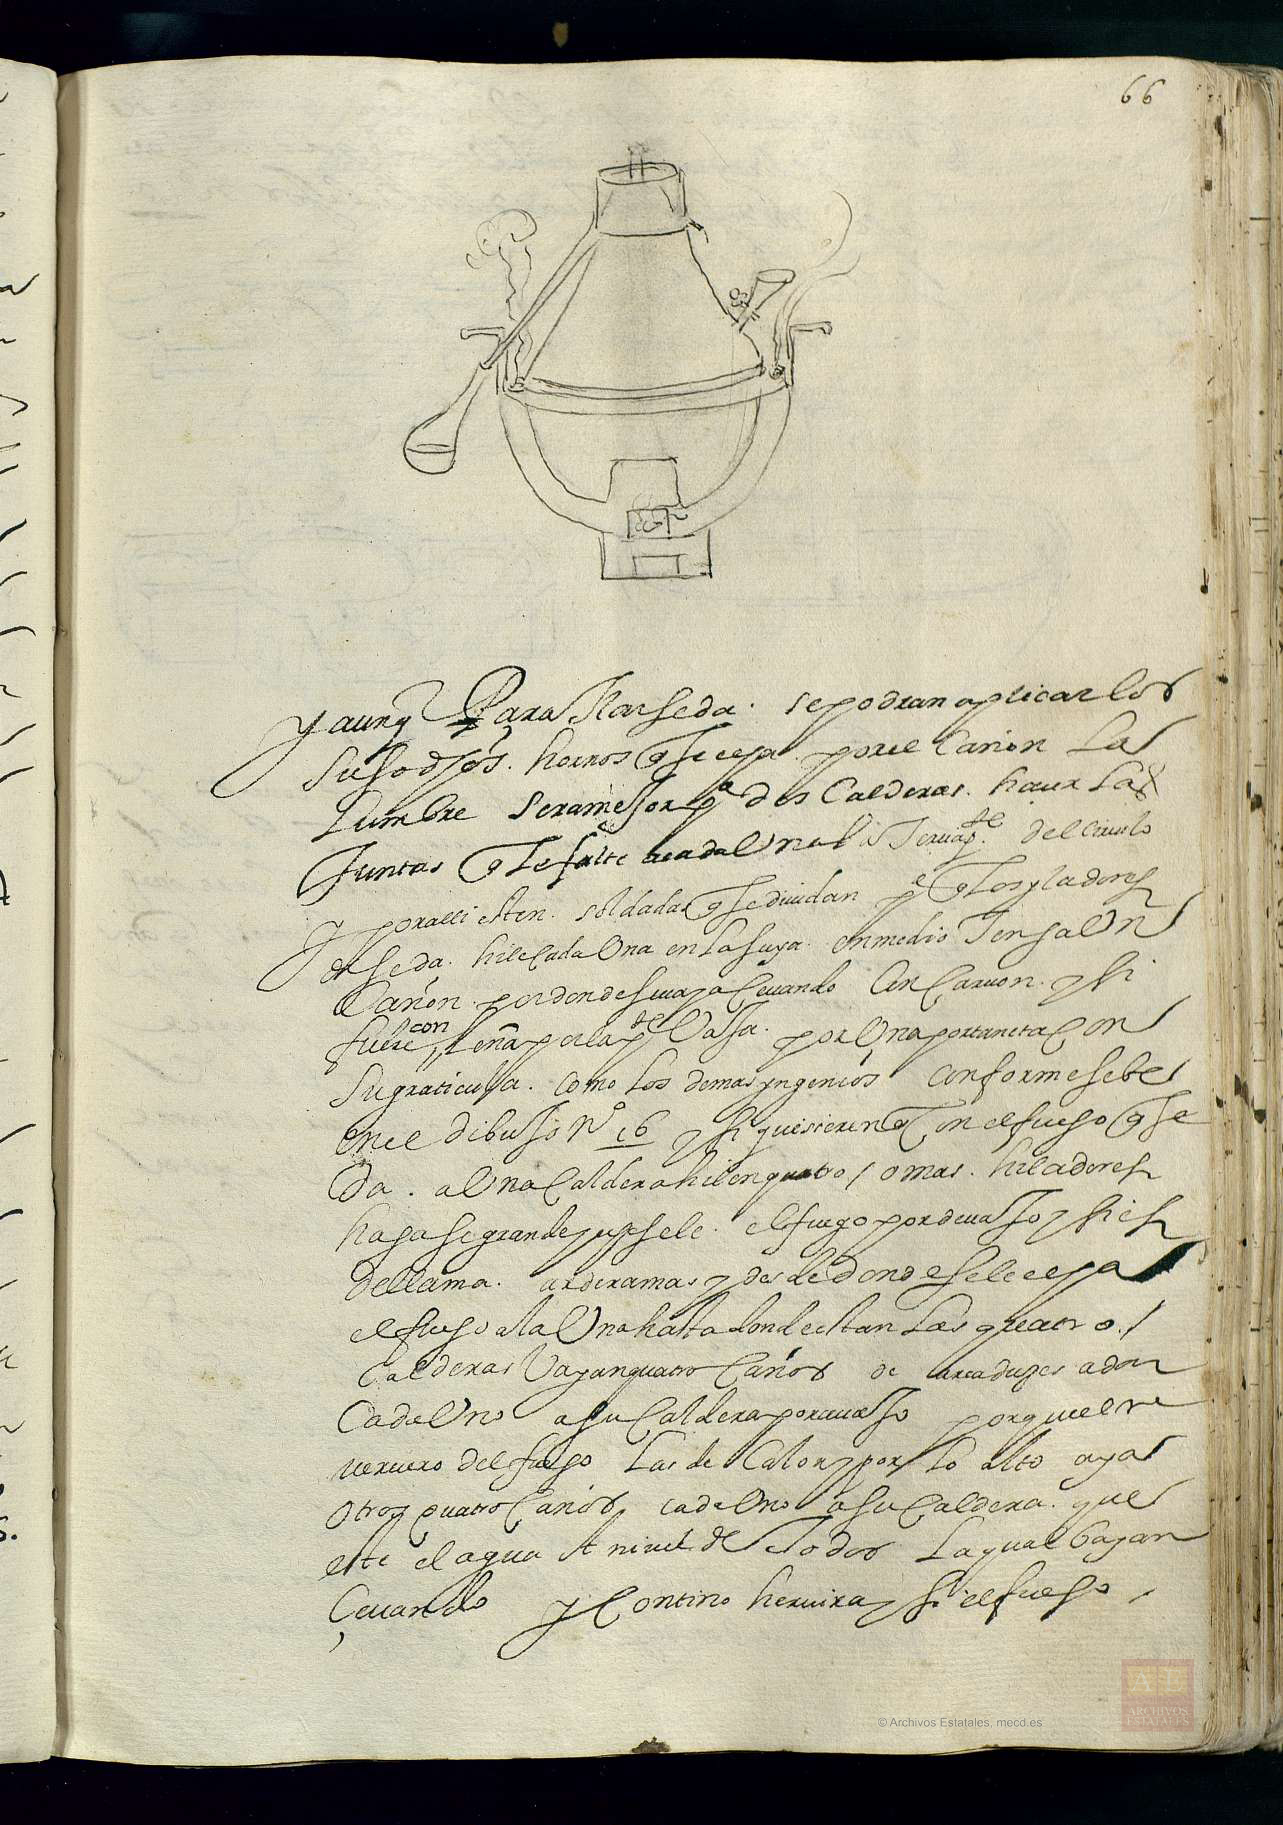 66
y aunq Para Ilar seda. se podran aplicar los
susodhos. hornos q se ceva por el Cañon La
Lumbre sera mejor qa dos Calderas. hacer las
Juntas q le falte acada Una la terzapte. del circulo
y por alli esten. soldadas q se diuidan pe q los yladores
de seda. hile Cada Una en la suya. en medio Tenga Un
Cañon. por donde se uaya Ceuando Con Caruon. y si
fuere con Leña por la pte Vaxa. por Una portañita Con
su graticula. como los demas yngenios conforme se be
en el dibuxo No 16 y si quisieren q Con el fuego q se
Da. a Una Caldera hilen quatro / o mas. hiladores
hagase grande y el fuego por deuaxo y si es
de llama. ardera mas y desde Donde se le ceua
el fuego a la Una hasta donde estan Las quatro. /
Calderas Vayan quatro Caños de arcaduzes a dar
Cada Uno a su Caldera por auaxo porque el re
ueruero del fuego Las de Calor y por lo alto aya
otros quatro Caños, cada Uno a su Caldera. que
este el agua A nivel de Todos La qual bayan
Ceuando y Contino heruira y si el fuego
© Archivos Estatales, mecd.es
ARCHIVOS
ESTATALES